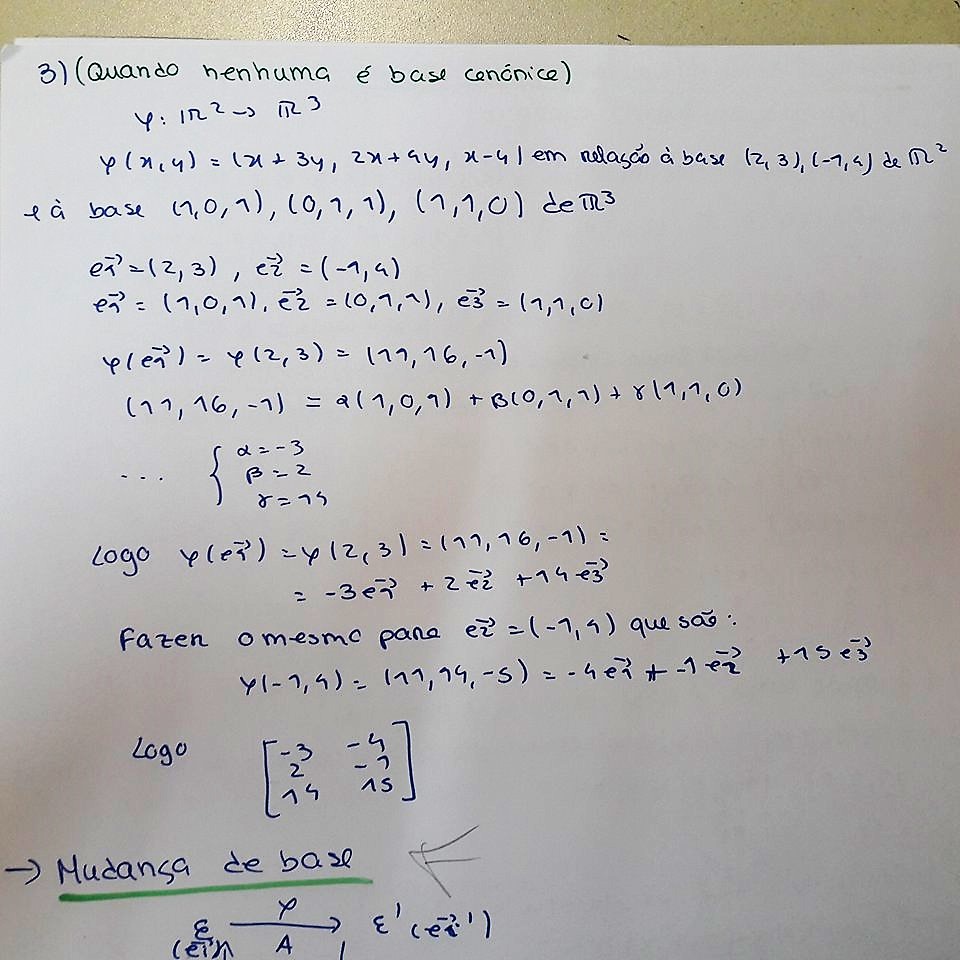 3) (Quando nenhuma é base canónica)
φ: ℝ² → ℝ³
φ(x,y) = (x+3y, 2x+4y, x-y) em relação à base (2,3), (-1,4) de ℝ²
e à base (1,0,1), (0,1,1), (1,1,0) de ℝ³
e⃗1 = (2,3), e⃗2 = (-1,4)
e⃗1 = (1,0,1), e⃗2 = (0,1,1), e⃗3 = (1,1,0)
φ(e⃗1) = φ(2,3) = (11,16,-1)
(11,16,-1) = α(1,0,1) + β(0,1,1) + γ(1,1,0)
... { α = -3
β = 2
γ = 14
Logo φ(e⃗1) = φ(2,3) = (11,16,-1) =
= -3e⃗1 + 2e⃗2 + 14e⃗3
Fazer o mesmo para e⃗2 = (-1,4) que são:
φ(-1,4) = (11,14,-5) = -4e⃗1 + -1e⃗2 + 15e⃗3
Logo [ -3 -4
2 -1
14 15 ]
→ Mudança de base
φ
ε → ε' (e⃗i')
(e⃗i) A